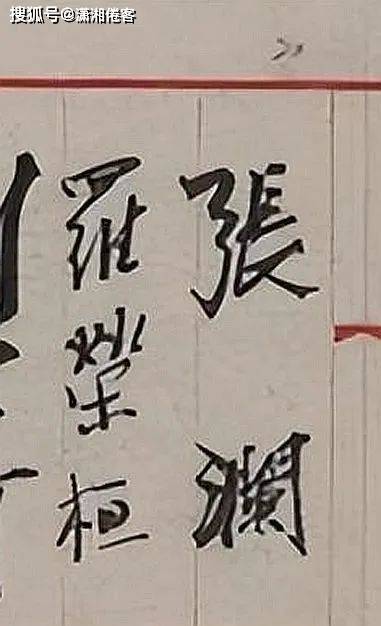 搜狐号@潇湘倦客
張瀾
羅榮桓